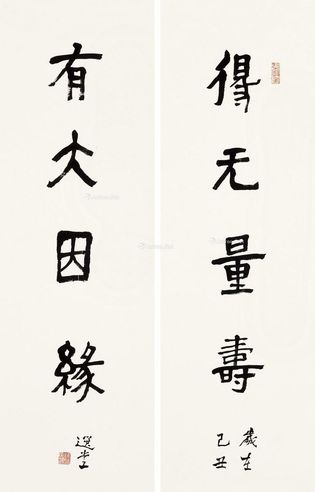 得无量壽
歲在
己丑
有大因緣
選堂